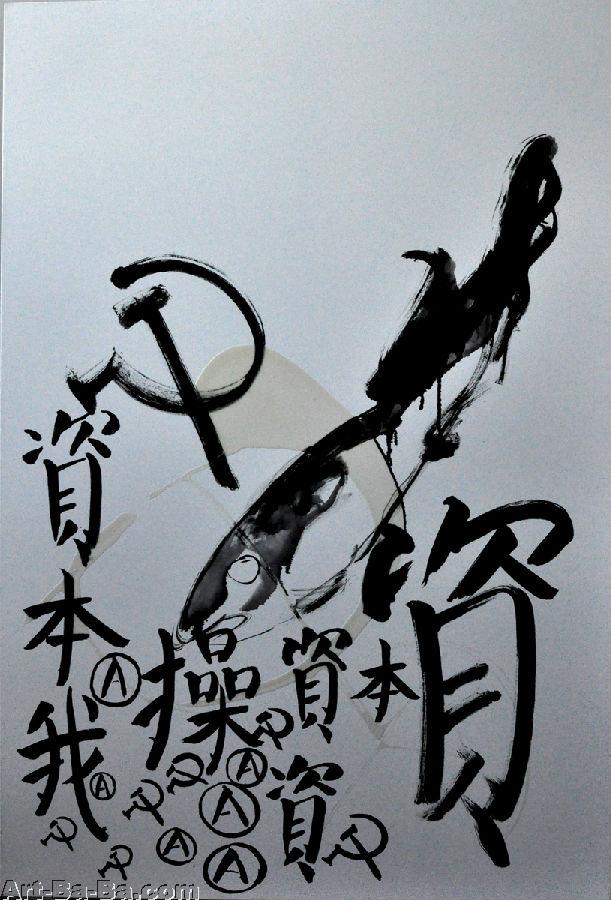 資本我
操
資本
資
資
Ⓐ
Ⓐ
Ⓐ
Ⓐ
Ⓐ
Ⓐ
Art-Ba-Ba.com